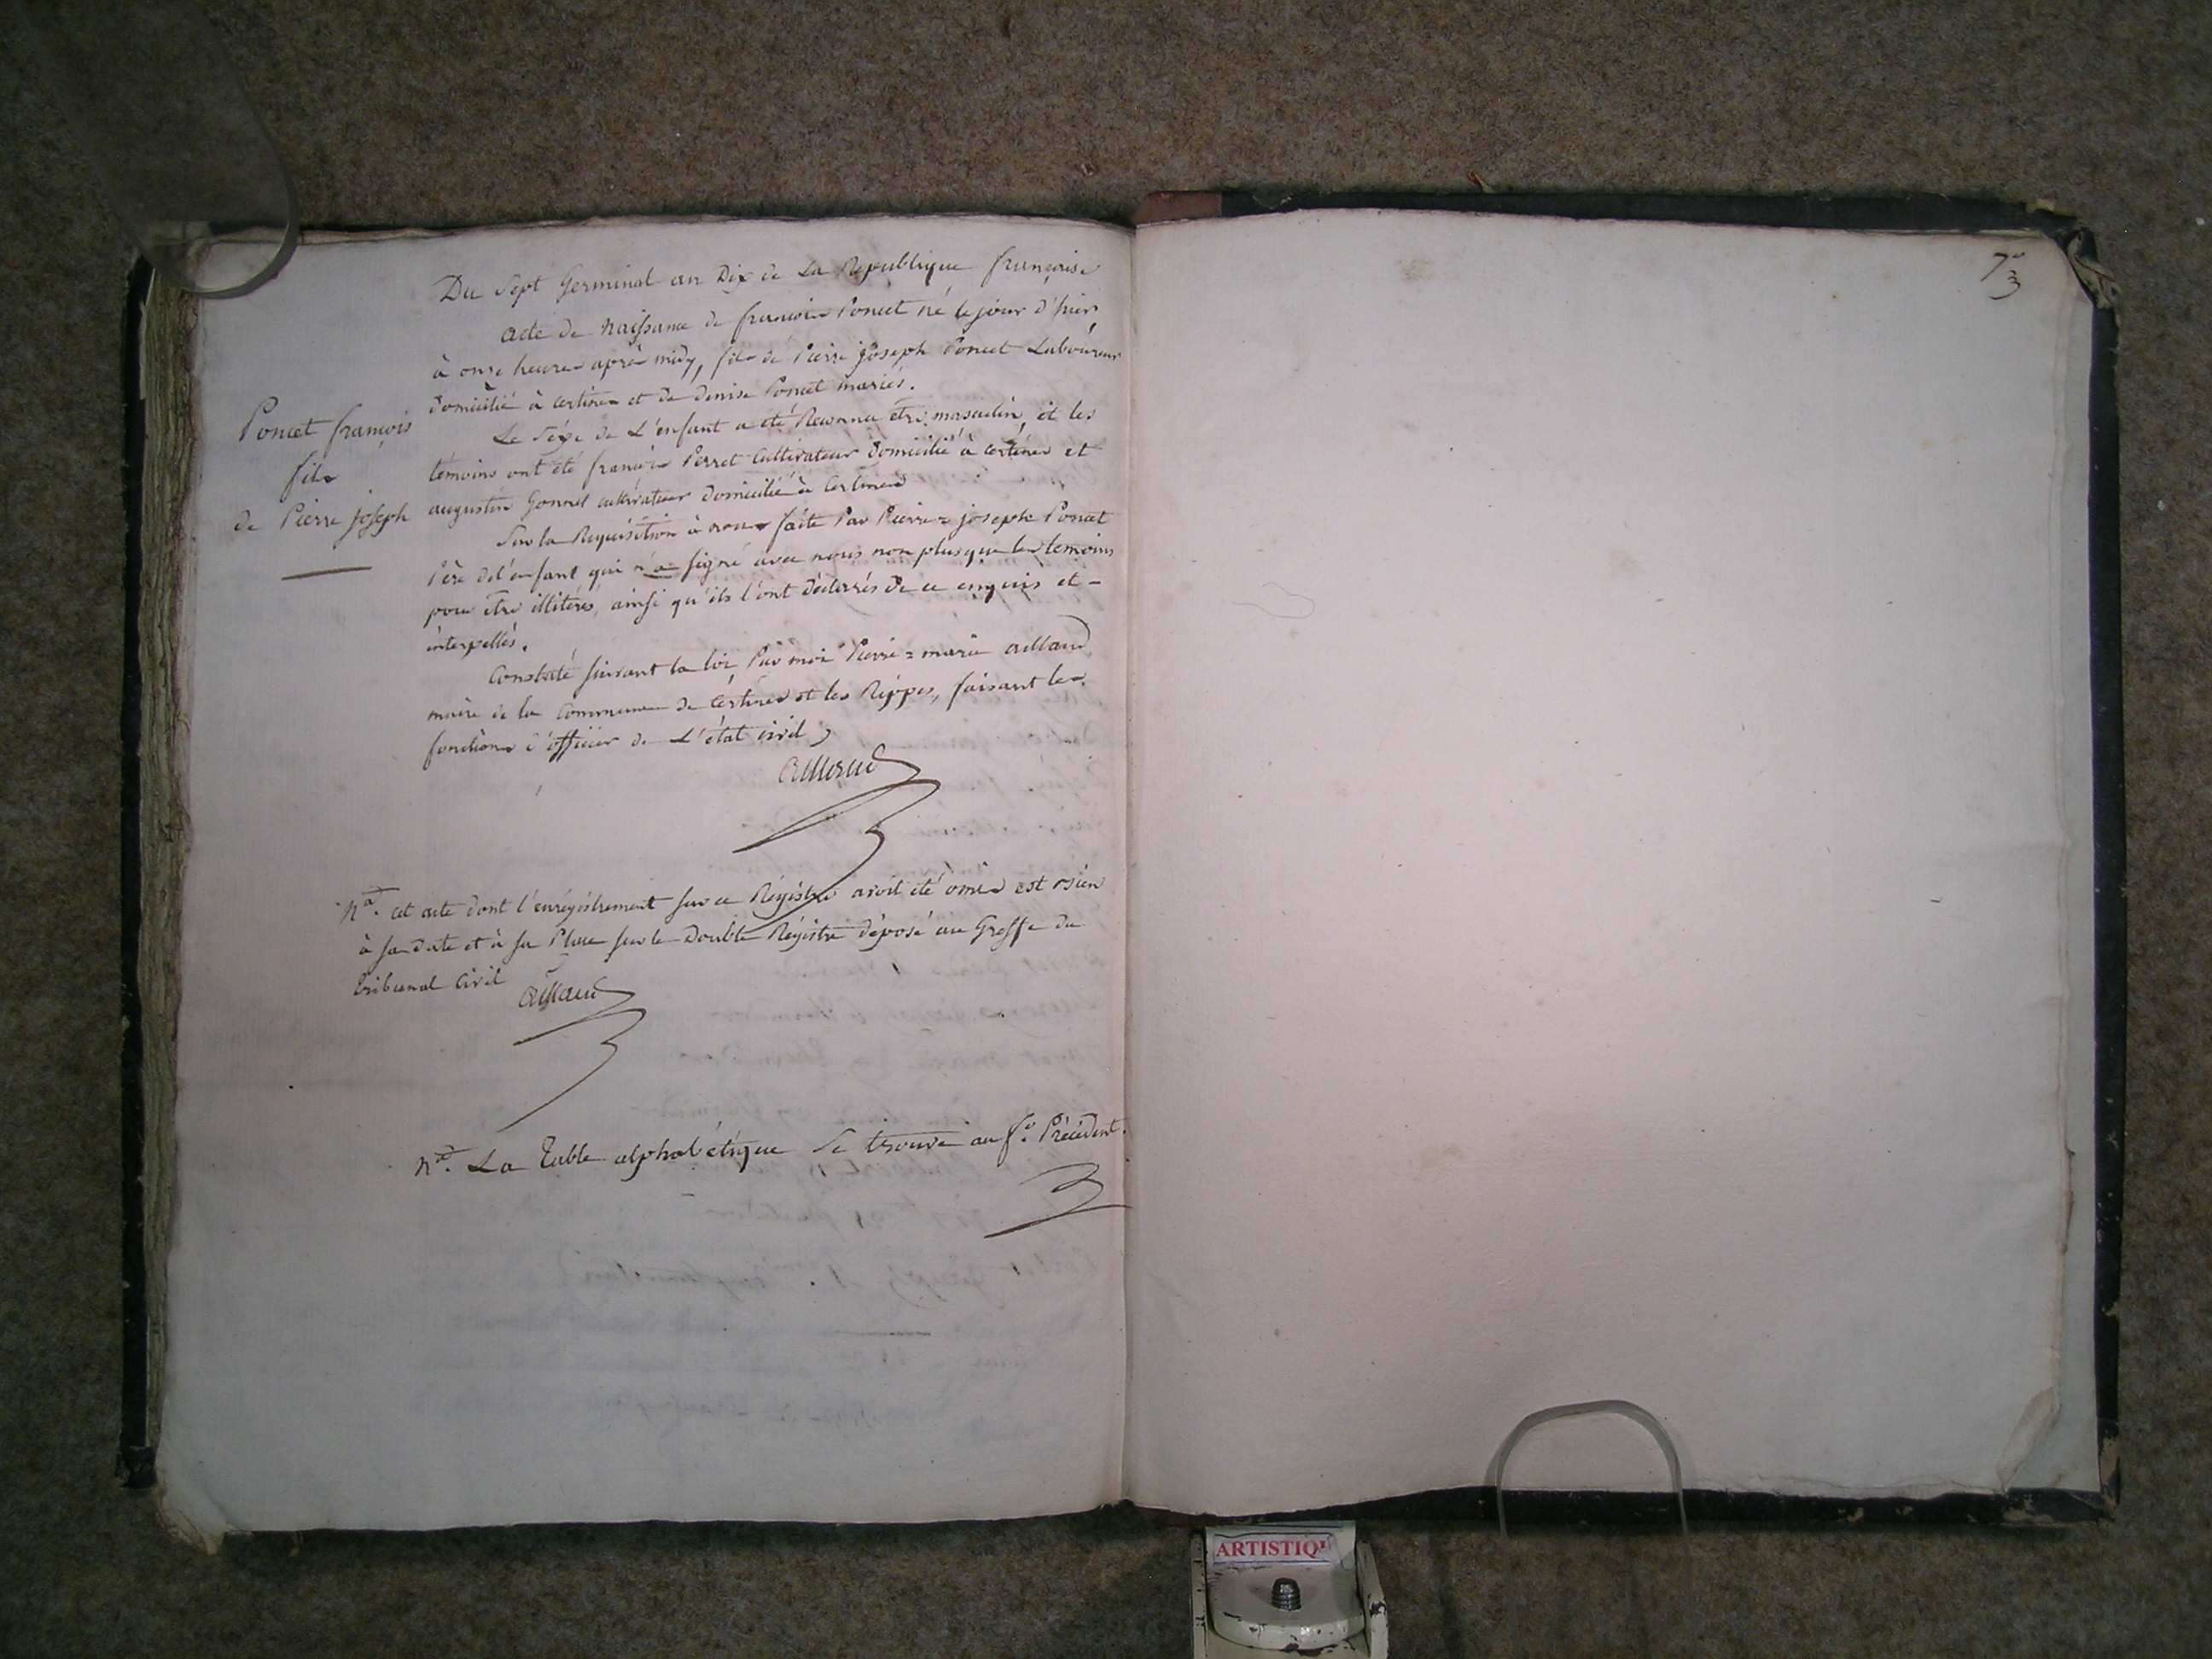 Du Sept Germinal an Dix de La République françoise
acte de naissance de francois Poncet né le jour d'hier
à onze heures après midy, fils de Pierre joseph Poncet Laboureur
domicilié à certines et de denise Poncet mariés.
Poncet francois
fils
de Pierre joseph
Le Séxe de L'enfant a été Reconnu être masculin, et les
témoins ont été françois Perret Cultivateur domicilié à certines et
augustin Gonnet cultivateur domicilié à Certines
Sur la Requisition à nous faite Par Pierre = joseph Poncet
Père de l'enfant qui n'a signé avec nous non plus que les temoins
pour être illitérés, ainsi qu'ils l'ont déclarrés de ce enquis et -
interpellés.
Constaté suivant la loi Par moi Pierre = marie aillaud
maire de la Commune de Certines et les Rippes, faisant les
fonctions d'officier de L'état civil
aillaud
Nta. cet acte dont l'enrégistrement sur ce Régistre avoit été omis est
à sa date et à sa Place sur le Double Régistre déposé au Greffe du
tribunal Civil
aillaud
nta. La Table alphabétique se trouve au fo. Précédent.
7
3
ARTISTIQ